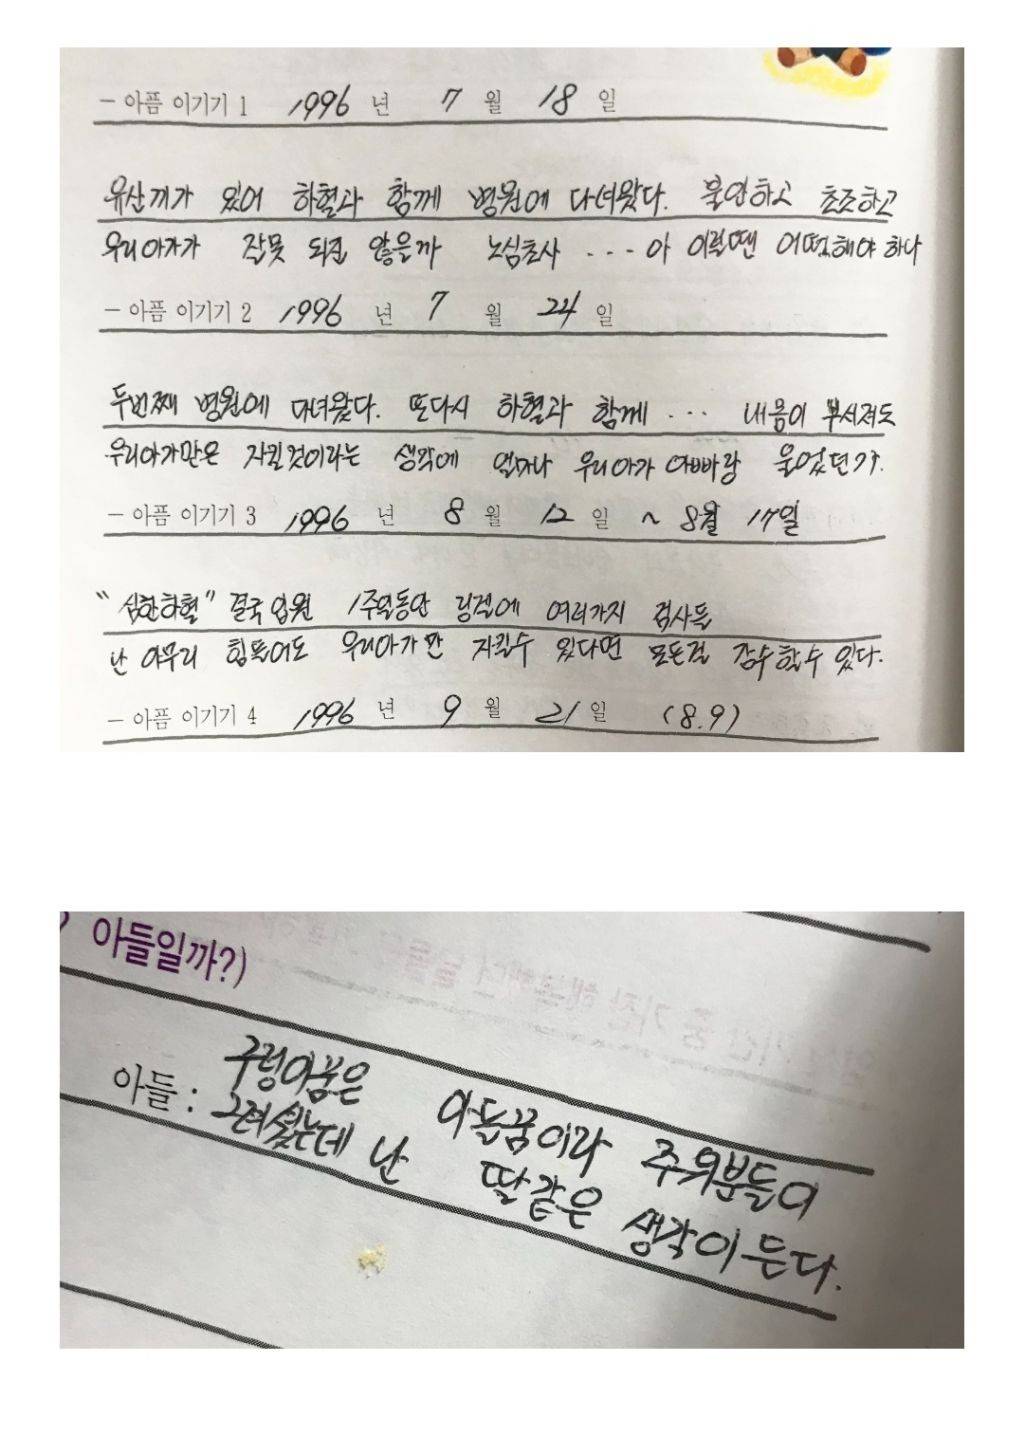 - 아픔 이기기 1 1996 년 7 월 18 일
유산끼가 있어 하혈과 함께 병원에 다녀왔다. 불안하고 초조하고
우리아가가 잘못 되진 않을까 노심초사 ... 아 이럴땐 어떡해야 하나
- 아픔 이기기 2 1996 년 7 월 24 일
두번째 병원에 다녀왔다. 또다시 하혈과 함께 ... 내몸이 부서져도
우리아가만은 지킬것이라는 생각에 얼마나 우리아가 아빠랑 울었던가.
- 아픔 이기기 3 1996 년 8 월 12 일 ~ 8월 17일
"심한하혈" 결국 입원 1주일동안 링겔에 여러가지 검사들
난 아무리 힘들어도 우리아가만 지킬수 있다면 모든걸 감수할수 있다.
- 아픔 이기기 4 1996 년 9 월 21 일 (8.9)
아들일까?)
아들 : 구렁이꿈은 아들꿈이라 주위분들이
그러셨는데 난 딸같은 생각이 든다.